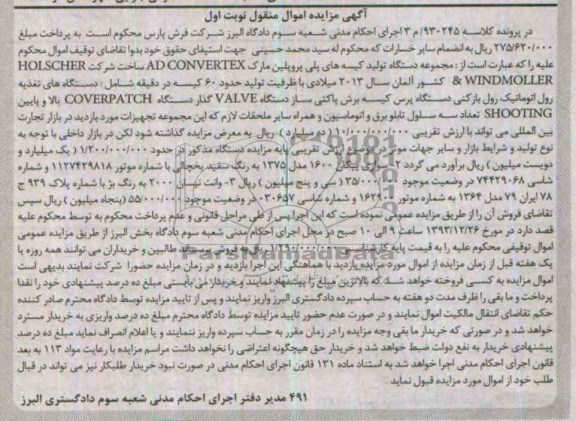 آگهی مزایده اموال منقول نوبت اول
در پرونده کلاسه ۹۳۰۲۴۵/م ۳ اجرای احکام مدنی شعبه سوم دادگاه البرز شرکت فرش پارس محکوم است به پرداخت مبلغ
۲۷۵/۶۲۰/۰۰۰ ریال به انضمام سایر خسارات که محکوم له سید محمد حسینی جهت استیفای حقوق خود بدوا تقاضای توقیف اموال محکوم
علیه را که عبارت است از : مجموعه دستگاه تولید کیسه های پلی پروپلین مارک AD CONVERTEX ساخت شرکت HOLSCHER
WINDMOLLER & کشور آلمان سال ۲۰۱۳ میلادی با ظرفیت تولید حدود ۶۰ کیسه در دقیقه شامل : دستگاه های تغذیه
رول اتوماتیک رول بازکنی دستگاه پرس کیسه برش پاکتی ساز دستگاه VALVE گذار دستگاه COVERPATCH بالا و پایین
SHOOTING تعداد سه سلول تابلو برق و اتوماسیون و همراه سایر ملحقات لازم که این مجموعه تجهیزات مورد بازدید در بازار تجارت
بین المللی می تواند با ارزش تقریبی ۱۰/۰۰۰/۰۰۰/۰۰۰ ( ده میلیارد ) ریال به معرض مزایده گذاشته شود لکن در بازار داخلی با توجه به
نوع تولید و شرایط بازار و سایر جهات موثر در موضوع ارزش تقریبی پایه مزایده دستگاه مذکور در حدود ۱/۲۰۰/۰۰۰/۰۰۰ ( یک میلیارد و
دویست میلیون ) ریال برآورد می گردد ۲- سواری پیکان ۱۶۰۰ مدل ۱۳۷۵ به رنگ سفید یخچالی با شماره موتور ۱۱۲۷۴۲۹۸۱۸ و شماره
شاسی ۷۴۴۲۹۰۶۸ در وضعیت موجود ۳۵/۰۰۰/۰۰۰ ( سی و پنج میلیون ) ریال ۳- وانت نیسان ۲۰۰۰ به رنگ بژ با شماره پلاک ۹۳۹ ج
۷۸ ایران ۷۹ مدل ۱۳۶۴ به شماره موتور ۱۶۲۹ و شماره شاسی ۰۳۰۶۵۷ در وضعیت موجود ۵۵/۰۰۰/۰۰۰ (پنجاه میلیون) ریال سپس
تقاضای فروش آن را از طریق مزایده عمومی نموده است که این اجرا پس از طی مراحل قانونی و عدم پرداخت محکوم به توسط محکوم علیه
قصد دارد در مورخ ۱۳۹۳/۱۲/۲۶ ساعت ۹ الی ۱۰ صبح در محل اجرای احکام مدنی شعبه سوم دادگاه بخش البرز از طریق مزایده عمومی
اموال توقیفی محکوم علیه را به قیمت پایه کارشناسی ۱/۲۹۰/۰۰۰/۰۰۰ ریال به فروش برساند طالبین و خریداران می توانند همه روزه یا
یک هفته قبل از زمان مزایده از اموال مورد مزایده بازدید با هماهنگی این اجرا بازدید و در زمان مزایده حضورا شرکت نمایند بدیهی است
اموال مزایده به کسی فروخته خواهد شد که بالاترین مبلغ را پیشنهاد نمایند و خریدار می بایستی مبلغ ده درصد پیشنهادی خود را نقدا
پرداخت و ما بقی را ظرف مدت دو هفته به حساب سپرده دادگستری البرز واریز نمایند و پس از تایید مزایده توسط دادگاه محترم صادر کننده
حکم تقاضای انتقال مالکیت اموال نمایند و در صورت عدم حضور تایید مزایده توسط دادگاه محترم مبلغ ده درصد واریزی به خریدار مسترد
خواهد شد و در صورتی که خریدار ما بقی وجه مزایده را در زمان مقرر به حساب سپرده واریز ننمایند و یا اعلام انصراف نماید مبلغ ده درصد
پیشنهادی خریدار به نفع دولت ضبط خواهد شد و خریدار حق هیچگونه اعتراضی را نخواهد داشت مراسم مزایده با رعایت مواد ۱۱۳ به بعد
قانون اجرای احکام مدنی اجرا خواهد شد به استناد ماده ۱۳۱ قانون اجرای احکام مدنی در صورت نبود خریدار طلبکار نیز می تواند در قبال
طلب خود از اموال مورد مزایده قبول نماید
۴۹۱ مدیر دفتر اجرای احکام مدنی شعبه سوم دادگستری البرز